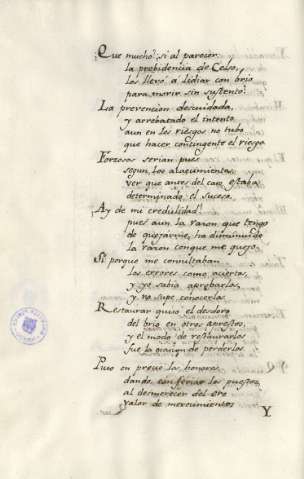 ¡Que mucho, si al parecer
la probidencia de Celso,
los llevó á lidiar con brio
para morir sin sustento!
La prevencion descuidada,
y arrebatado el intento
aun en los riesgos no tubo
que hacer contingente el riesgo
Forzosos serian pues
segun, los
ver que antes del caso estaba
determinado, el suceso.
¡Ay de mi credulidad!
pues aun la razon que tengo
de quejarme, ha disminuido
la razon conque me quejo.
Si porque me consultaban
los errores como aciertos,
y yo sabia aprobarlos,
y no supe conocerlos.
Restaurar quiso el desdoro
del brio en otros aprestos,
y el modo de restaurarlos
fué la ocasion de perderlos
Puso en precio los honores
donde, con feriar los puestos,
al desmerecer del oro
valor de merecimientos
Y